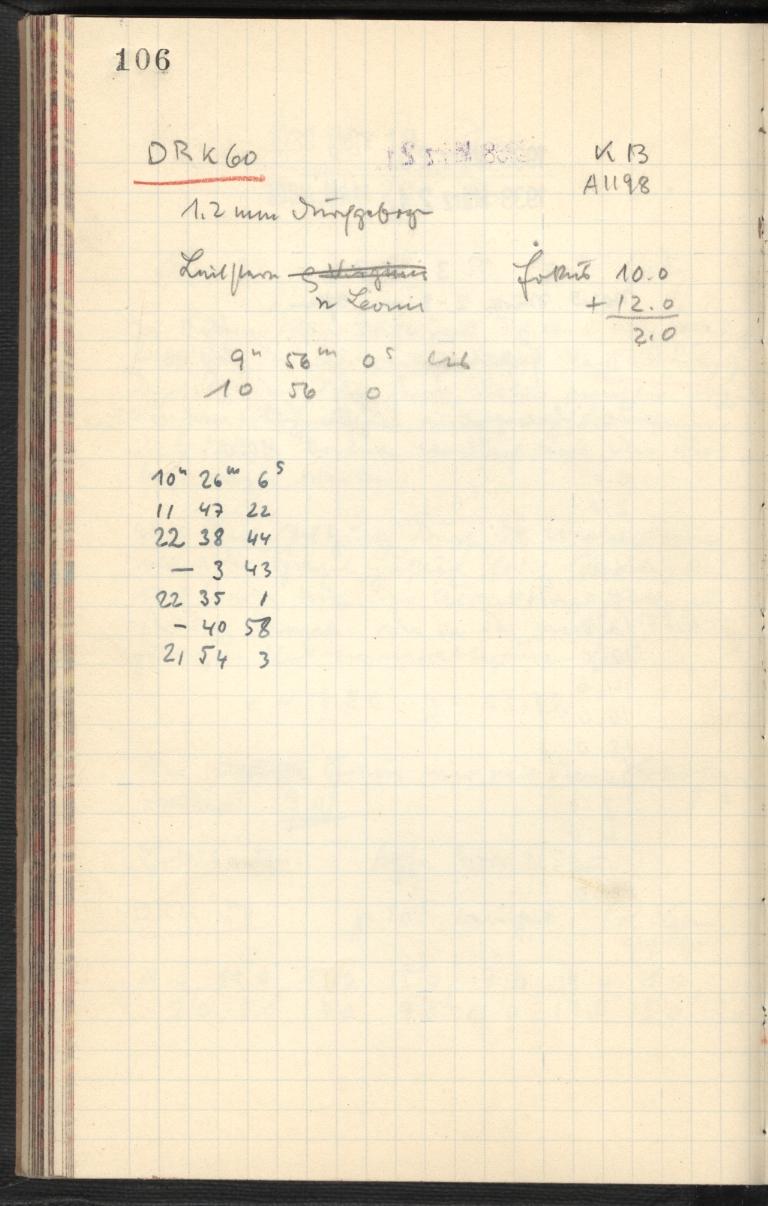 106
DRK60 K B
A1198
1.2 mm durchgebogen
Leitstern ζ Virginis Fokus 10.0
η Leonis + 12.0
2.0
9ʰ 56ᵐ 0ˢ bis
10 56 0
10ʰ 26ᵐ 6ˢ
11 47 22
22 38 44
— 3 43
22 35 1
- 40 58
21 54 3